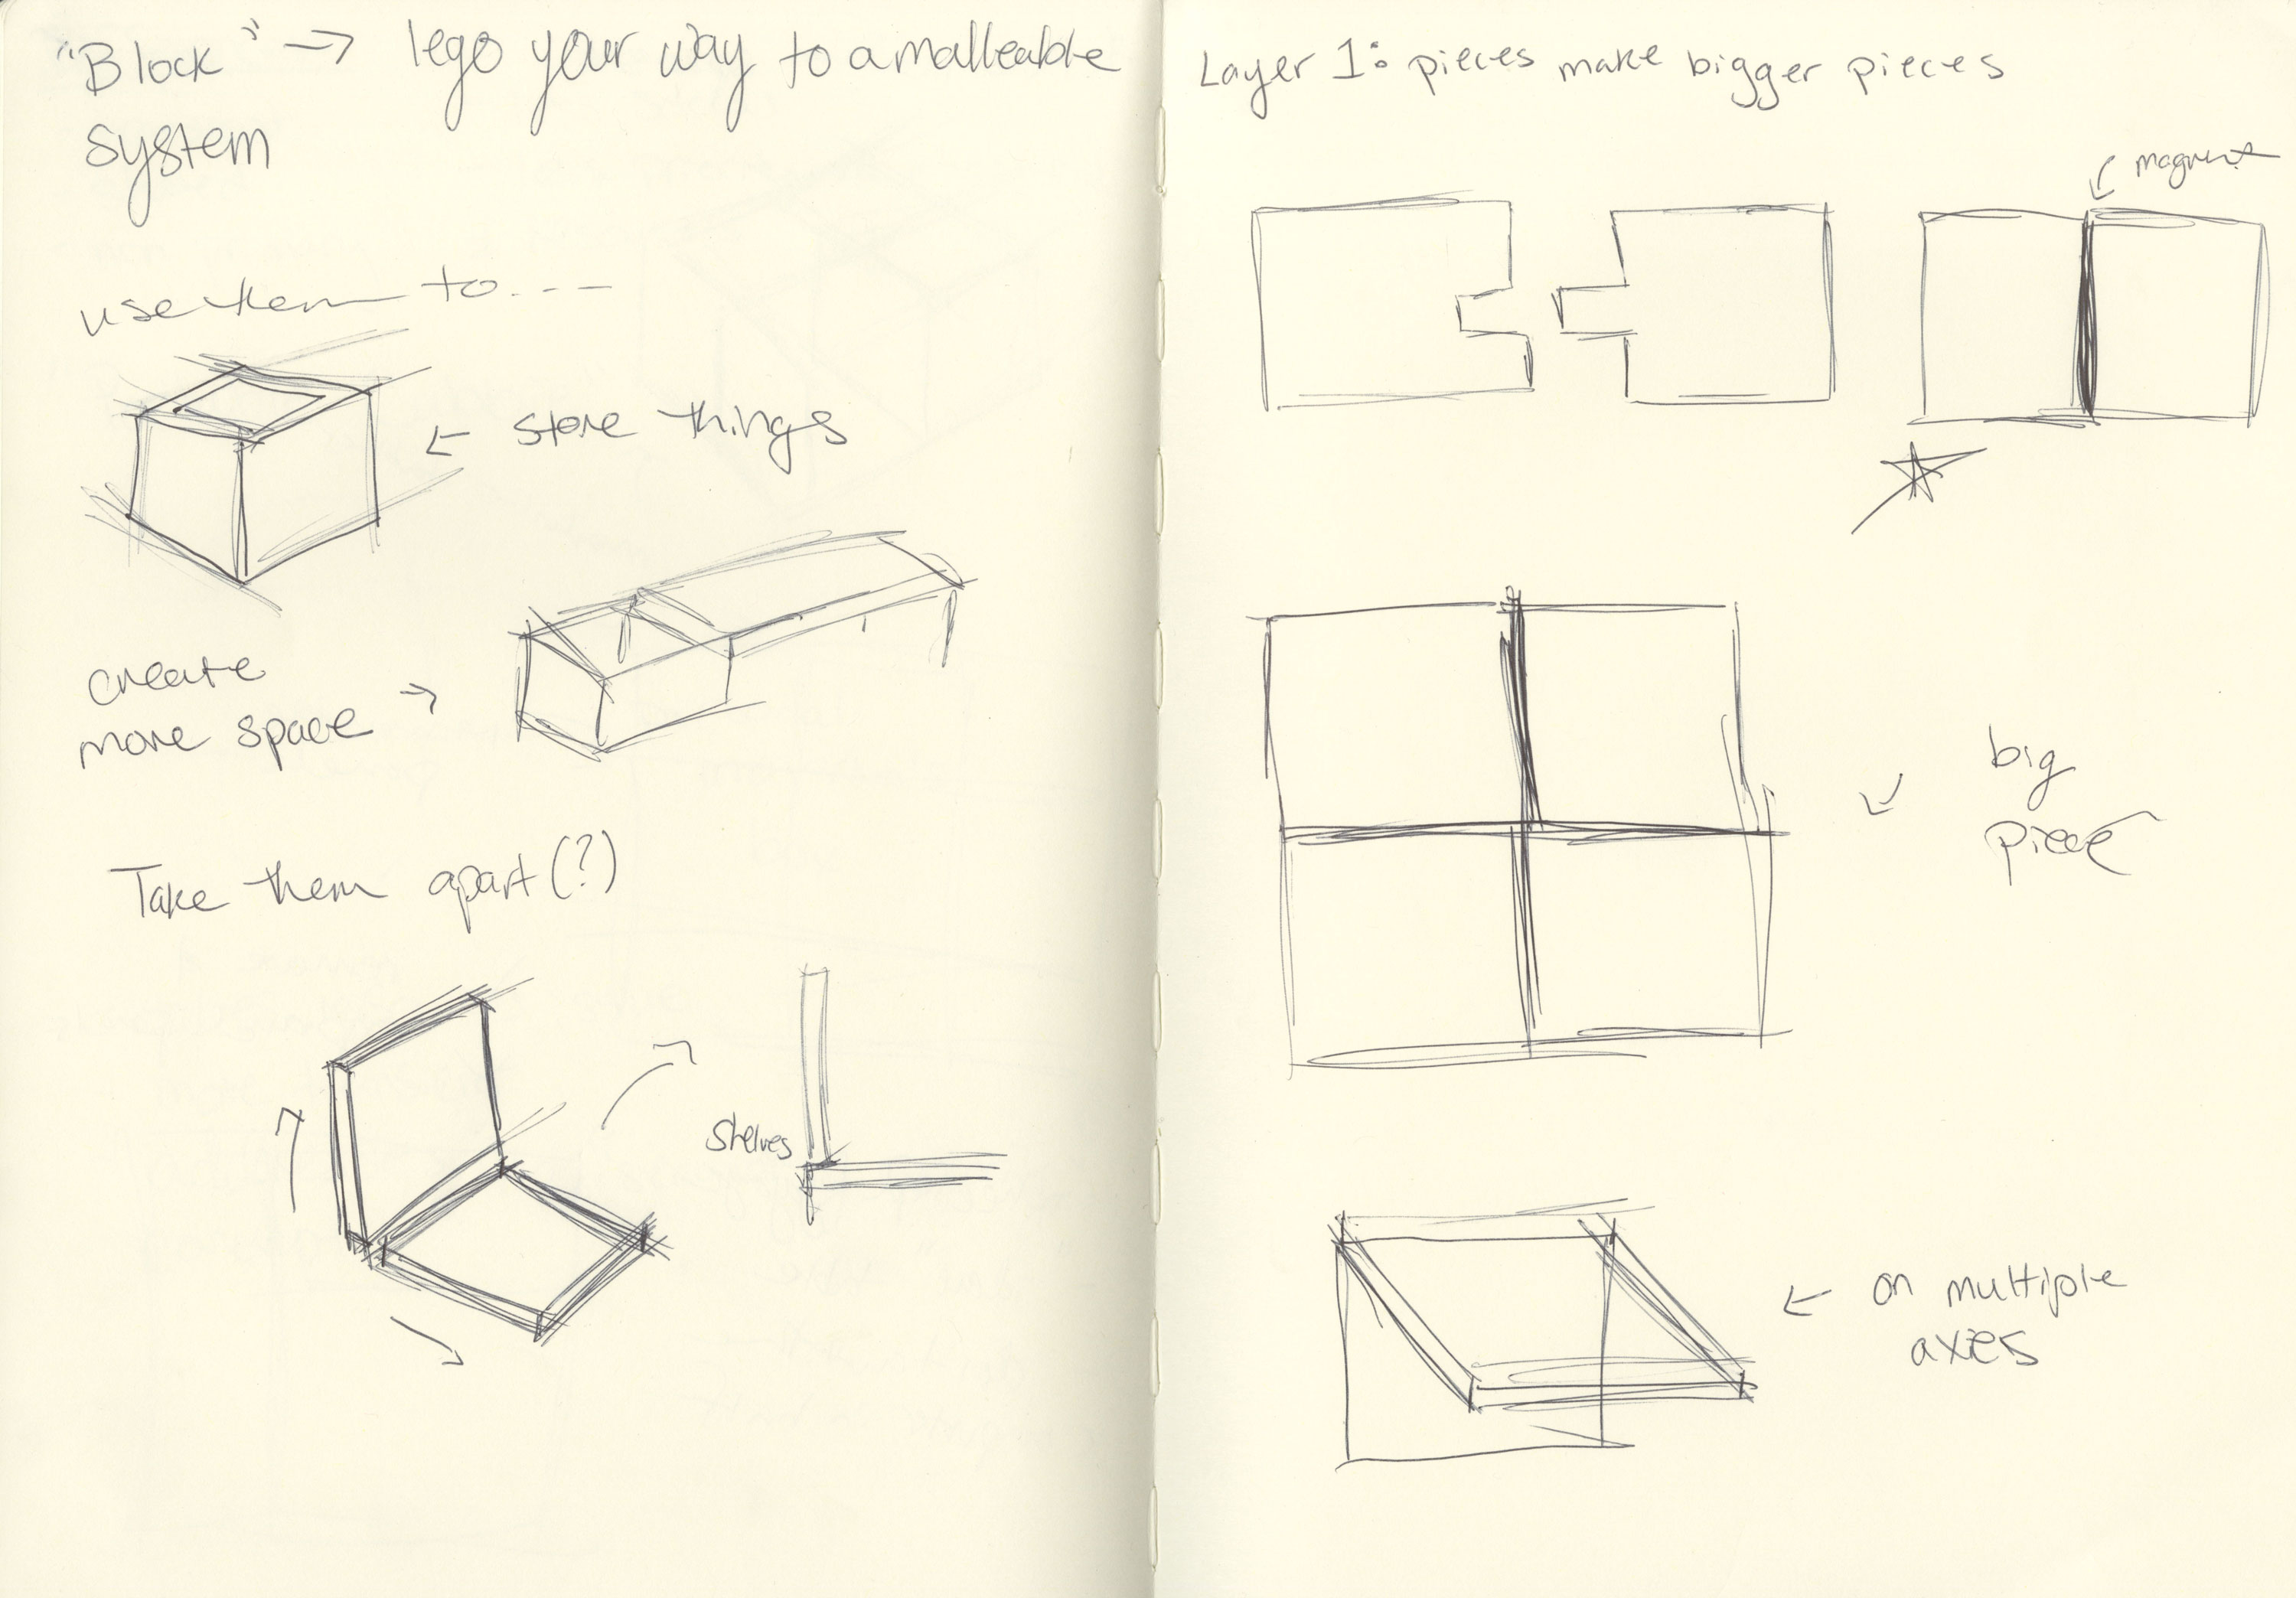 "Block" → lego your way to a malleable
system
use them to...
← store things
create
more space →
Take them apart (?)
shelves
Layer 1: pieces make bigger pieces
magnet
big
piece
← on multiple
axies